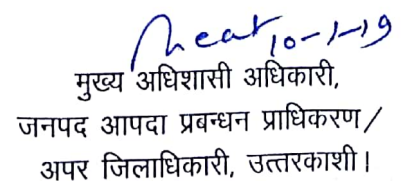 10-1-19
मुख्य अधिशासी अधिकारी,
जनपद आपदा प्रबन्धन प्राधिकरण/
अपर जिलाधिकारी, उत्तरकाशी।